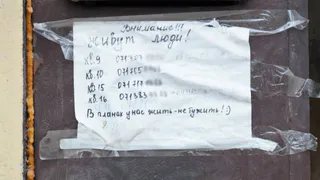 Внимание!!!
Живут люди!
кв. 9 071
кв. 10 071
кв. 15 071
кв. 16 071
В планах у нас жить-не тужить! :)